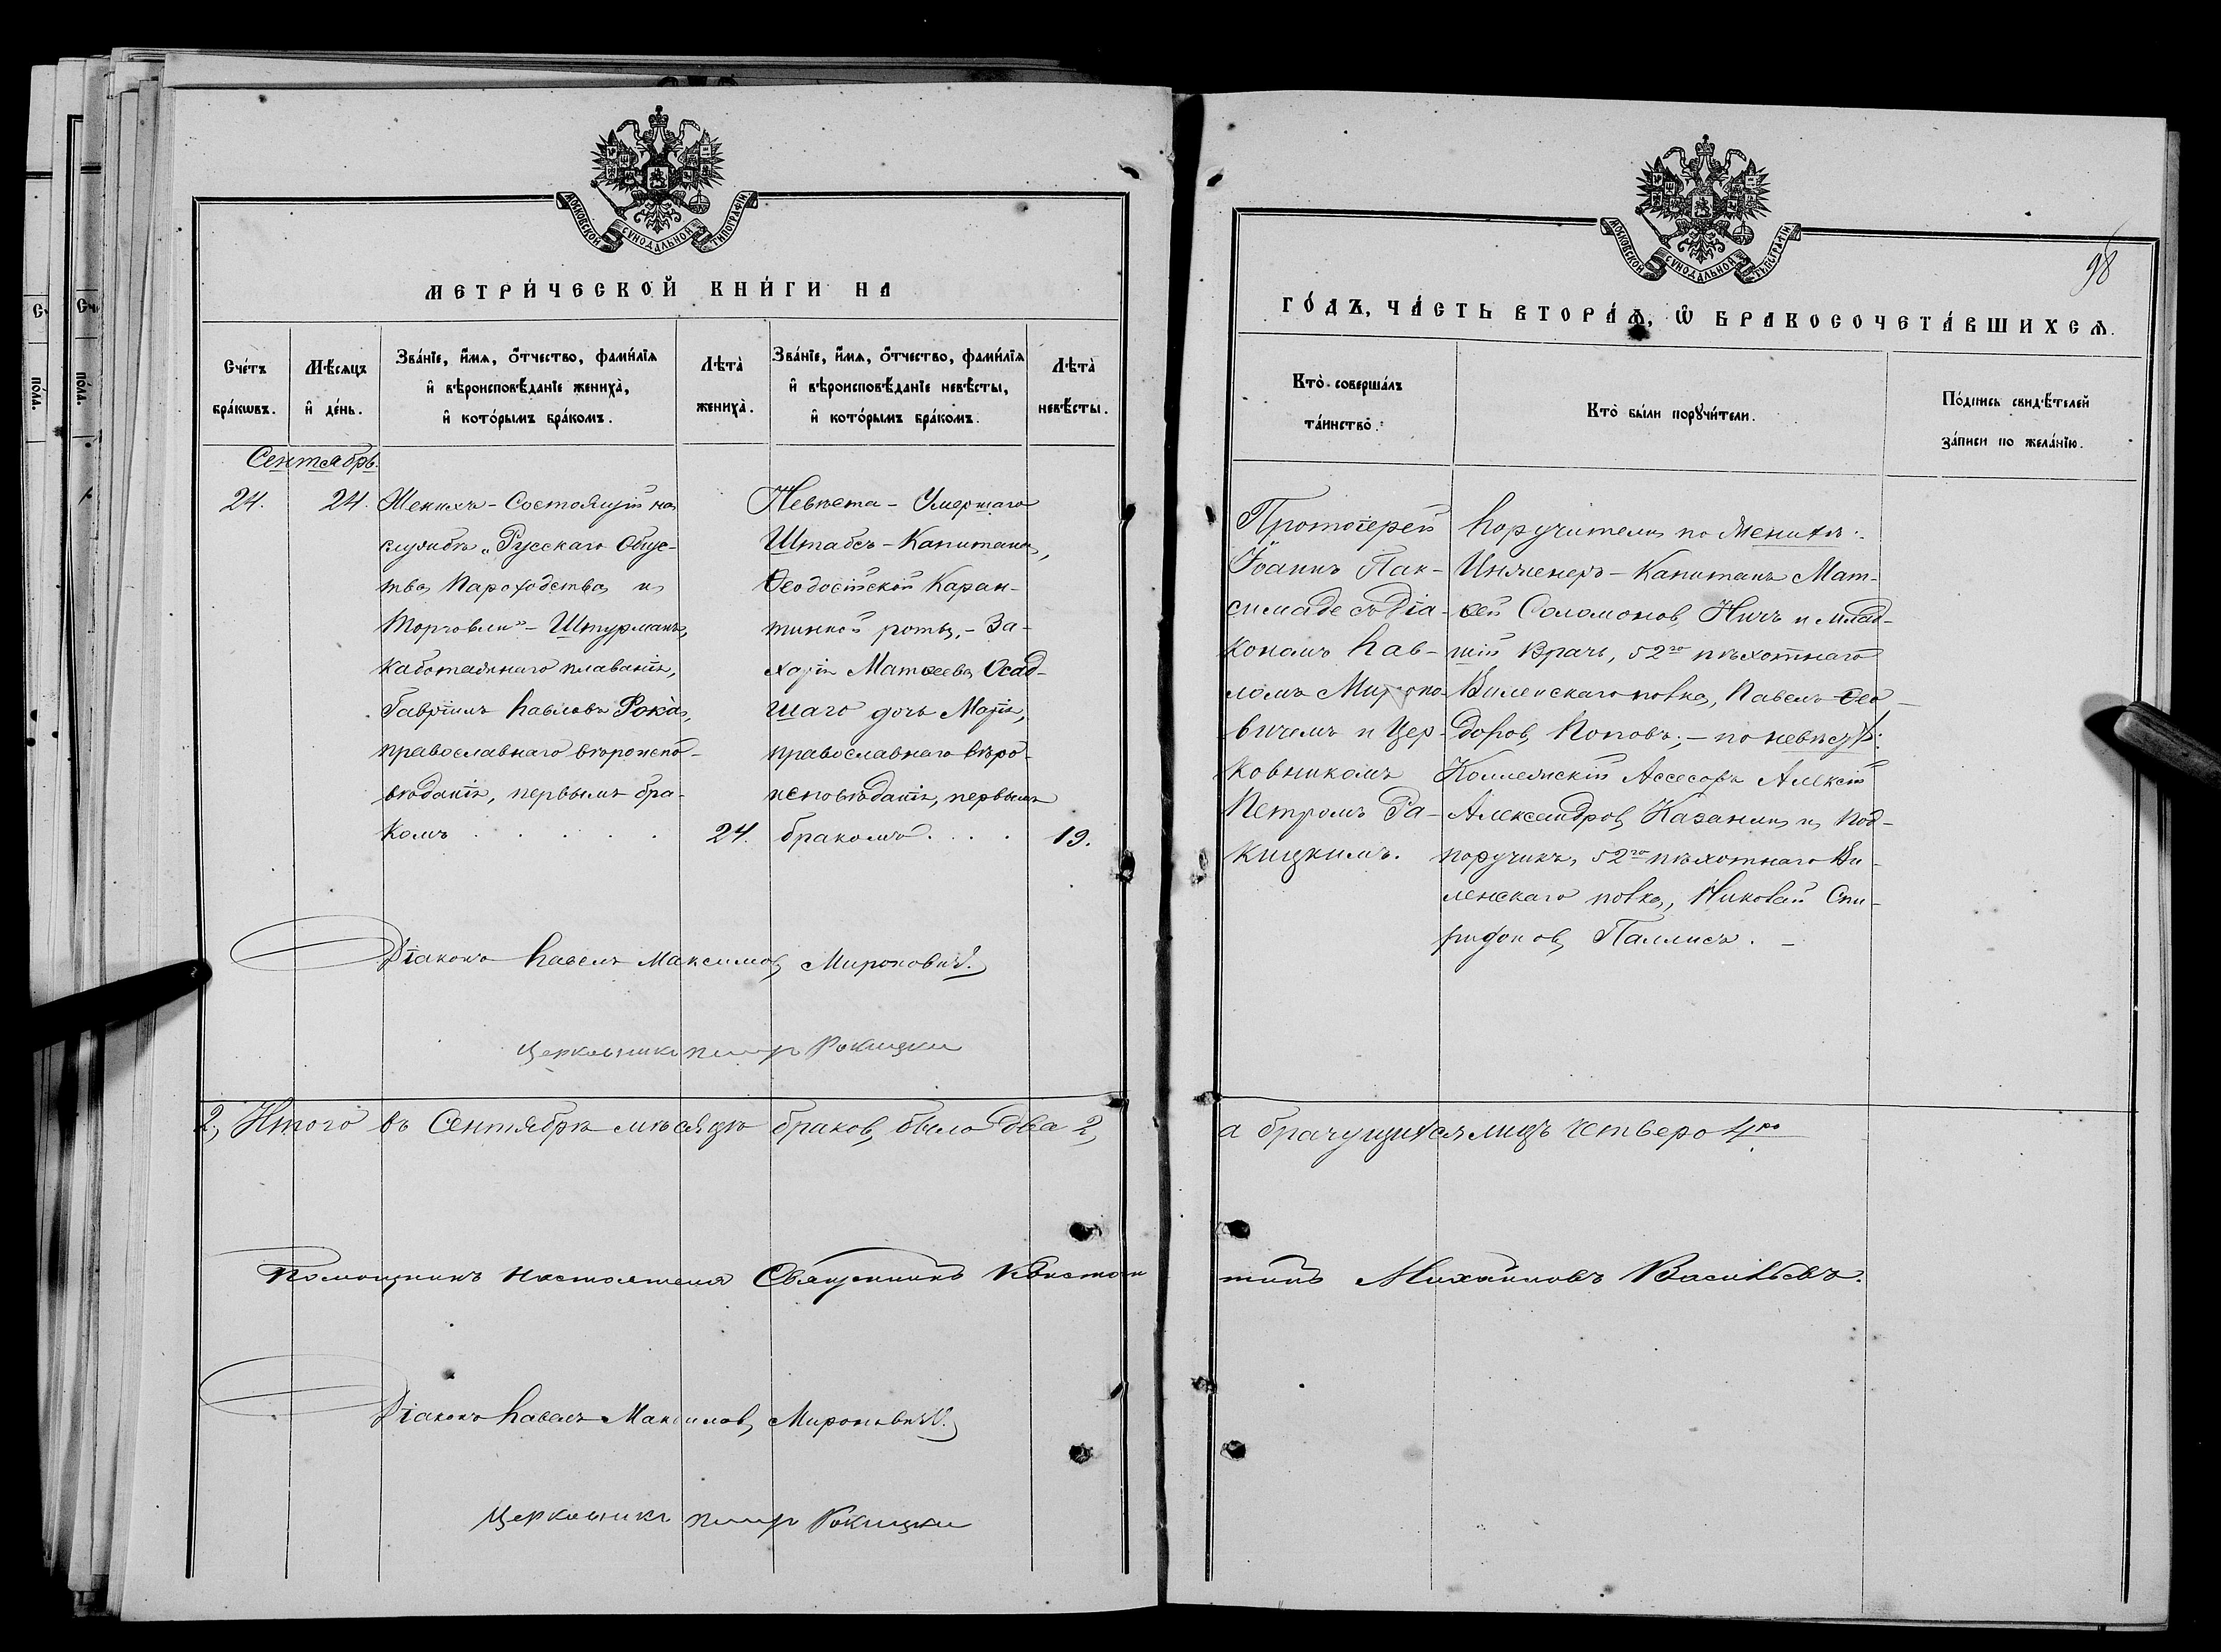 МОСКОВСКОЙ СѴНОДАЛЬНОЙ ТИПОГРАФІИ
МЕТРИ́ЧЕСКОЙ КНИ́ГИ НА
Сче́тъ бра́кѡвъ.
Мѣ́сяцъ и҆ де́нь.
Зва́нїе, и҆́мѧ, ѻ҆́тчество, фами́лїѧ
и҆ вѣроисповѣ́данїе жениха̀,
и҆ кото́рымъ бра́комъ.
Лѣта̀ жениха̀.
Зва́нїе, и҆́мѧ, ѻ҆́тчество, фами́лїѧ
и҆ вѣроисповѣ́данїе невѣ́сты,
и҆ кото́рымъ бра́комъ.
Лѣта̀ невѣ́сты.
Сентябрь.
24.
24.
Женихъ - Состоящій на
службѣ „Русскаго Общес-
тва Пароходства и
Торговли" - Штурманъ,
каботажнаго плаванія,
Гавріилъ Павловъ Рока,
православнаго вѣроиспо-
вѣданія, первымъ бра-
комъ . . . . .
24.
Невѣста - Умершаго
Штабсъ-Капитана,
Ѳеодосійской Каран-
тинной роты, - За-
харія Матвеева Осад-
шаго дочь Марія,
православнаго вѣро-
исповѣданія, первымъ
бракомъ . . . .
19.
Діаконъ Павелъ Максимовъ Мироновичъ.
Церковникъ Петръ Рокицкій
2, Итого въ Сентябрѣ мѣсяцѣ браковъ было два 2,
Помощникъ настоятеля Священникъ Констан
Діаконъ Павелъ Максимовъ Мироновичъ.
Церковникъ Петръ Рокицкій
МОСКОВСКОЙ СѴНОДАЛЬНОЙ ТИПОГРАФІИ
98
ГО́ДЪ, ЧА́СТЬ ВТОРА́Ѧ, Ѽ БРАКОСОЧЕТА́ВШИХСѦ.
Кто̀ соверша́лъ
та́инство:
Кто̀ бы́ли порꙋчи́тели.
По́дпись свидѣ́телей
за́писи по жела́нїю.
Протоіерей
Іоаннъ Пак-
симаде съ Діа-
кономъ Пав-
ломъ Мироно-
вичемъ и Цер-
ковникомъ
Петромъ Ра-
кицкимъ.
Поручители по женихѣ:
Инженеръ-Капитанъ Мат-
вей Соломоновъ Ничъ и млад-
шій врачъ, 52го пѣхотнаго
Виленскаго полка, Павелъ Ѳео-
доровъ Поповъ; - по невѣстѣ:
Коллежскій Ассесоръ Алексѣй
Александровъ Казанли и под-
поручикъ, 52го пѣхотнаго Ви-
ленскаго полка, Николай Спи-
ридоновъ Паллисъ. -
а брачущихся лицъ четверо 4ро
тинъ Михайловъ Васильевъ.